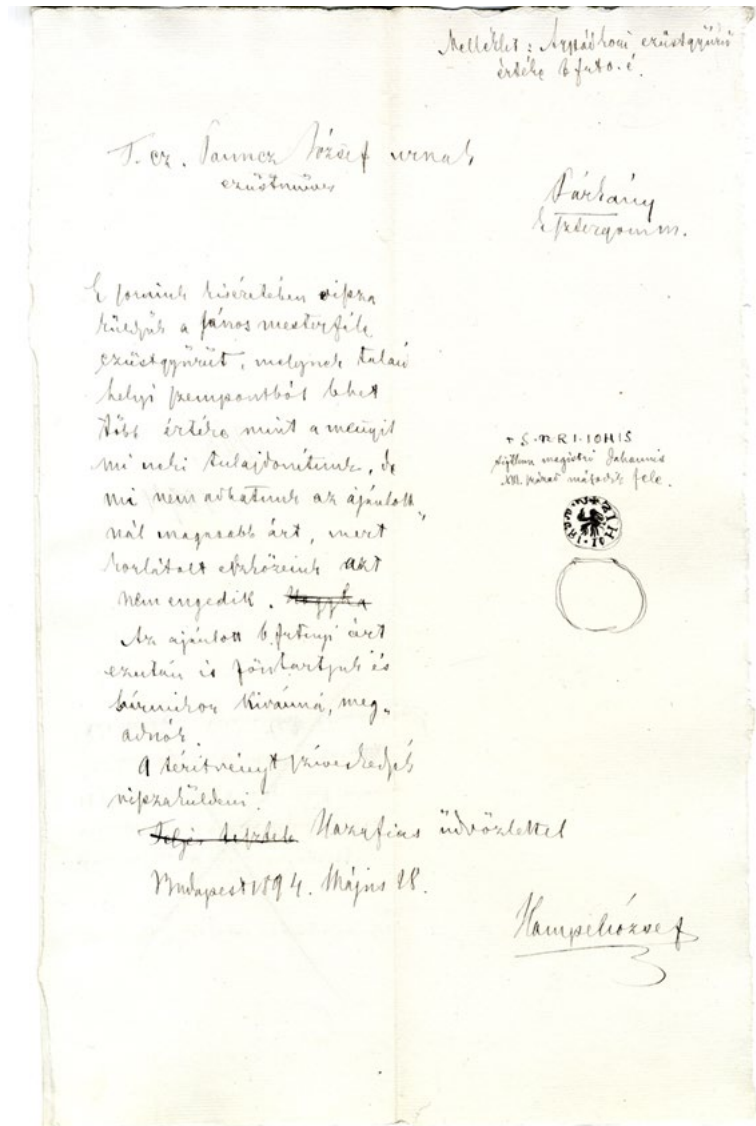 Melléklet: Árpádkori ezüstgyűrű
értéke 6 frt o. é.
T. cz. Pauncz József urnak
ezüstműves
Párkány
Esztergom m.
E soraink kiséretében vissza
küldjük a János mesterféle
ezüstgyűrűt, melynek talán
helyi szempontból lehet
több értéke mint a mennyit
mi neki tulajdonítunk, de
mi nem adhatunk az ajánlott
nál magasabb árt, mert
korlátolt eszközeink azt
nem engedik.
Az ajánlott 6 frtnyi árt
ezután is föntartjuk és
bármikor kivánná, meg„
adnók.
A téritvényt sziveskedjék
visszaküldeni.
Hazafias üdvözlettel
Budapest 1894. Május 28.
Hampel József
+ S · MRI · IOHIS
sigillum magistri Johannis
XIII. század második fele.